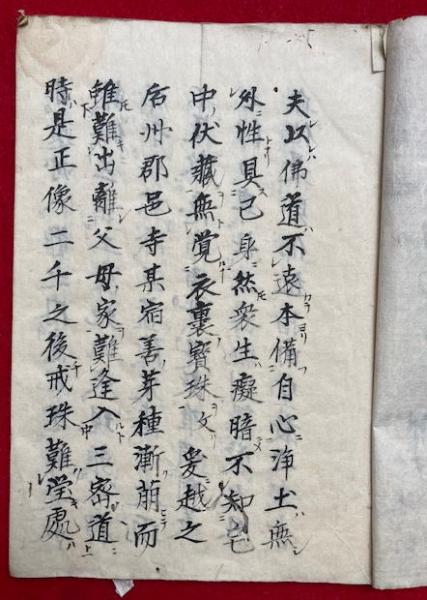 夫以佛道不遠本備自心浄土無
外性具己身然衆生癡暗不知宅
中伏藏無覚衣裏寳珠文爰越之
后州郡邑寺某宿善芽種漸萠而
雖難出離父母家難逢入三密道
時是正像二千之後戒珠難瑩處